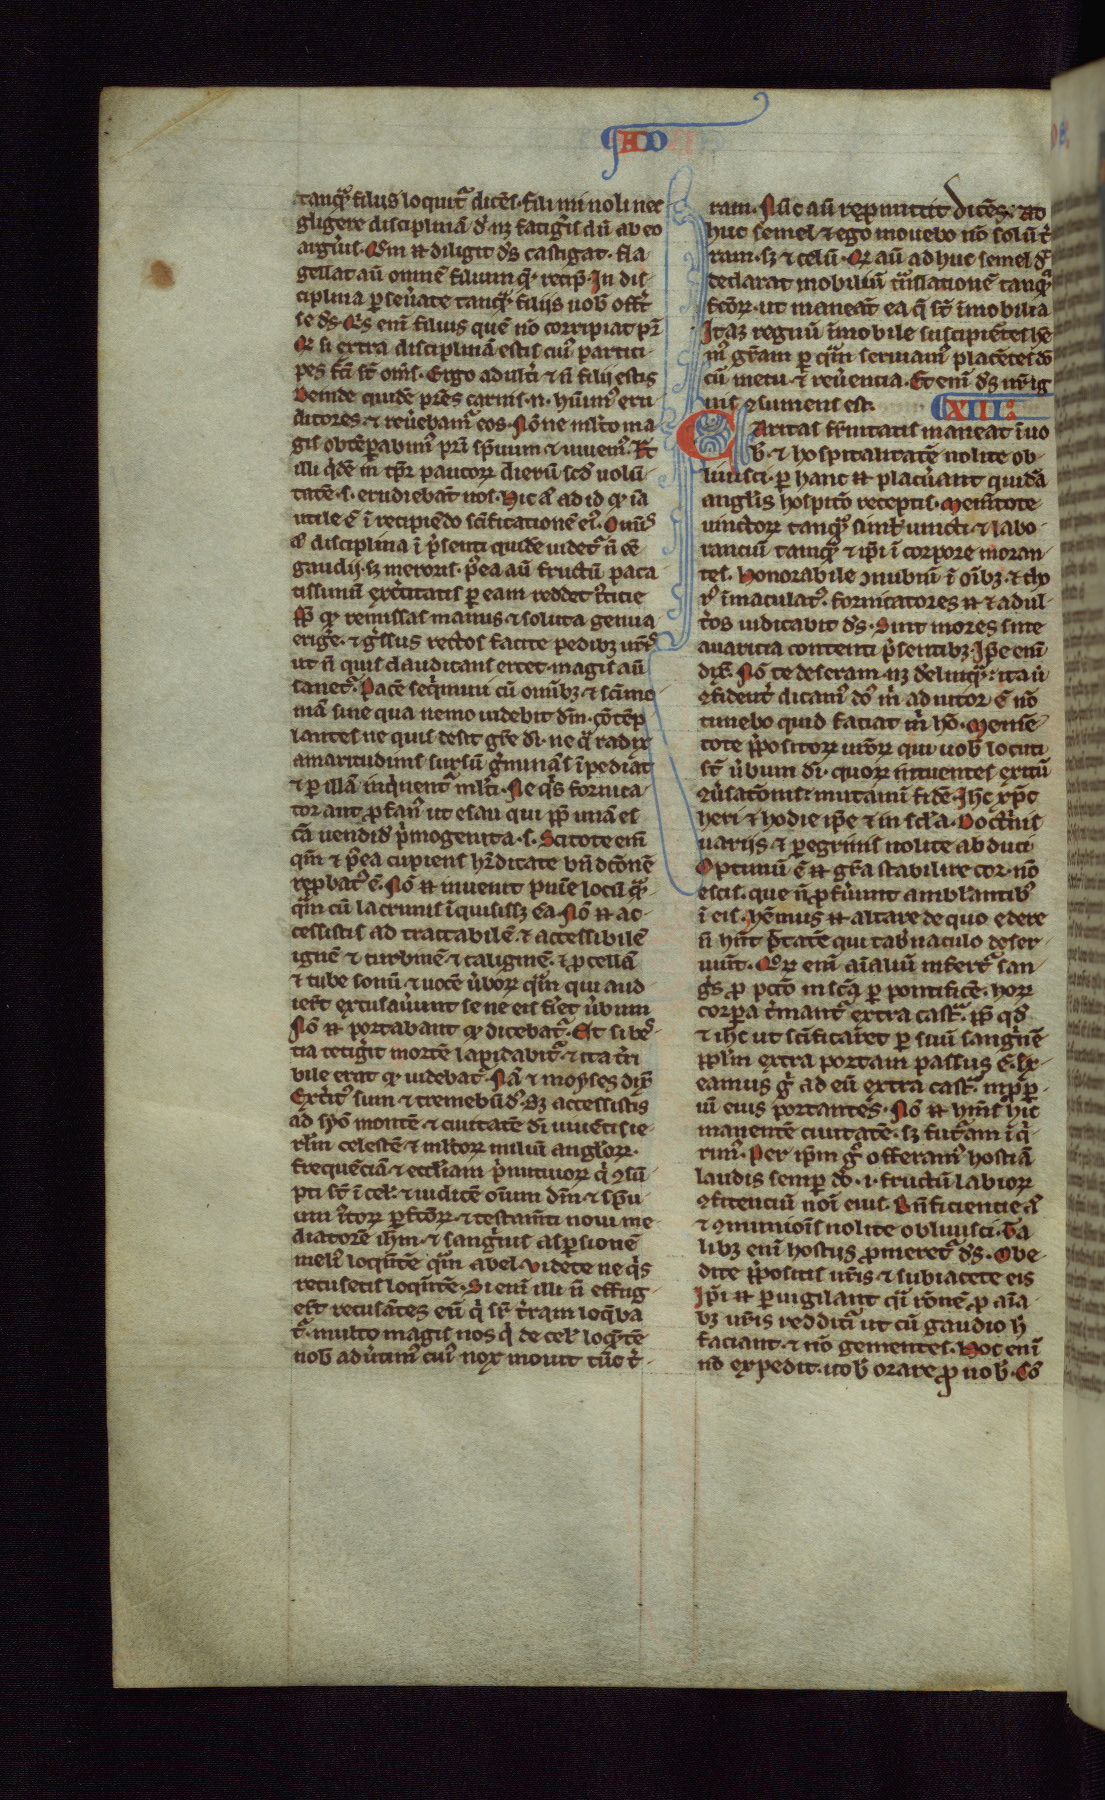 AD
tanqͣ filiis loquitᷣ dicēs. fili mi noli nec
gligere disciplinā dn̄i. neqꝫ fatigeris dū ab eo
argueris. Qͦm eni diligit dn̄s castigat. fla
gellat aū omnē filium qͦs recipit. In dis
ciplina ꝑseuerate tanqͣ filiis uob̄ offert
se ds̄. Qͥs enī filius quē nō corripiat pr̄
Qͦd si extra disciplinā estis cuiꝰ partici
pes fc̄i st̄ om̄s. Ergo adulteri ⁊ n̄ filij estis
Deinde quidē pr̄es carnis n. habuimꝰ eru
ditores. ⁊ reuerebamᷣ eos. Nōne ml̓to ma
gis obtēꝑabimꝰ pr̄i sp̄uum ⁊ uiuemꝰ. Et
illi qͥdē in tp̄r paucorꝝ dierū scd̄ uolū
tatē s. erudiebāt nos. Hic aͧ ad id qͦd
utile ē ī recipiēdo sc̄ificationē eiꝰ. Omnis
aͧ disciplina ī p̄senti quidē uidetᷣ n̄ eē
gaudij. sꝫ meroris. postea aū fructū paca
tissimū exercitatis ꝑ eam reddet iusticie
ꝓpt̄ qͦd remissas manus. ⁊ soluta genua
erigite. ⁊ gressus rectos facite pedibꝫ ur̄is
ut n̄ quis claudicans erret. magis aū
sanetᷣ. Pacē seqͥmini cū omībꝫ. ⁊ sc̄imo
niā sine qua nemo uidebit dm̄. cōtēp
lantes ne quis desit gr̄e di. ne qͣ radix
amaritudinis sursū germināns īpediat
⁊ ꝑ illā inqͥnentᷣ ml̓ti. Ne qͥs fornica
tor aut ꝓfanꝰ ut esau qui ꝓpt̄ unā es
cā uendidit p̄mogenita. s. Scitote enī
qm̄ ⁊ postea cupiens h̓editate bn̄dc̄onē
reꝓbatꝰ ē. Nō eni inuenit penitētie locū qͣ
qͣm cū lacrimis īquisissꝫ eā. Nō eni ac
cessistis ad tractabilē. ⁊ accessibilē
ignē ⁊ turbinē ⁊ caliginē. ⁊ ꝓcellā
⁊ tube sonū. ⁊ uocē ūborꝝ qͣm qui aud
ierūt excusauerunt se ne eis fieret ūbum
Nō eni portabant qͦd dicebatᷣ. Et si bes
tia tetigerit mortē lapidabitᷣ. ⁊ ita terri
bile erat qͦd uidebatᷣ. Nā ⁊ moyses dixit
Exterritꝰ sum ⁊ tremebūdꝰ. Sꝫ accessistis
ad syō montē. ⁊ ciuitatē di uiuētis ie
rl̓m celestē. ⁊ ml̓torꝝ miliū angl̓orꝝ.
frequēciā. ⁊ eccl̓iam p̄mitiuorꝝ qͥ ꝯsc̄
pti st̄ ī celis. ⁊ iudicē om̄ium dm̄. ⁊ sp̄u
um iustorꝝ ꝑfc̄orꝝ. ⁊ testam̄ti noui me
diatorē ih̄m. ⁊ sanguis asꝑsionē
meliꝰ loquētē qͣm abel. Videte ne qͥs
recusetis loquētē. Si enī illi n̄ effug
erūt recusātes eū qͥ sr̄ terram loqͤba
tᷣ. multo magis nos qͥ de celis loqͤntē
nob̄ aduertimꝰ cuiꝰ uox mouit tūc ter
ram. Nūc aū reꝓmittit dicēs. Ad
huc semel. ⁊ ego mouebo nō solū ter
ram. sꝫ ⁊ celū. Qͦd aū adhuc semel dic̄
declarat mobiliū trāslationē tanqͣ
fc̄orꝝ. ut maneāt ea qͤ st̄ īmobilia
Itaqꝫ regnū īmobile suscipiētes habe
mꝰ gr̄am ꝑ qͣm seruiamꝰ placētes dō
cū metu. ⁊ reuerencia. Etenī ds̄ nr̄ ig
nis ꝯsumens est. XIIIᷓ
Caritas fr̄nitatis maneat ī uo
b̄. ⁊ hospitalitatē nolite ob
liuisci. ꝑ hanc eni placuerant quidā
angelis hospicio receptis. Mementote
uinctorꝝ tanqͣ simul uincti. ⁊ labo
ranciū tanqͣ ⁊ ip̄i ī corpore moran
tes. Honorabile ꝯnubiū ī oībꝫ. ⁊ tho
rꝰ īmaculatꝰ. fornicatores eni ⁊ adul
teros iudicabit ds̄. Sint mores sine
auaricia contenti p̄sentibꝫ. Ip̄e enī
dixit. Nō te deseram. neqꝫ derelinquā. ita ut
ꝯfidenter dicamꝰ dn̄s m̄ adiutor ē nō
timebo quid faciat m̄ hō. Memē
tote p̄positorꝝ ur̄orꝝ qui uob̄ locuti
st̄ ūbum di. quorꝝ intuentes exitū
ꝯuersac̄onis. imitamini fidē. Ih̄c xp̄c
heri ⁊ hodie ip̄e ⁊ in sc̄l̓a. Doctrinis
uariis ⁊ ꝑegrinis nolite abduci
Optimū ē eni gr̄a stabilire cor. nō
escis. que n̄ ꝓfuerunt ambulantibꝰ
ī eis. Habemus eni altare de quo edere
n̄ hn̄t p̄tatē qui tabernaculo deser
uiūt. Qͦrꝝ enī aīaliū infertᷣ san
guis ꝓ pc̄co in sc̄a ꝑ pontificē. horꝝ
corpora cremantᷣ extra castra. ꝓpt̄ qͦd
⁊ ih̄c ut sc̄ificaret ꝑ suū sanguinē
ppl̓m extra portam passus ē. Ex
eamus gͦ ad eū extra castra inproꝑ
iū eius portantes. Nō eni hēmus hic
manentē ciuitatē. sꝫ futuram īqͥ
rimꝰ. Per ip̄m gͦ offeramꝰ hostiā
laudis semꝑ dō. i. fructū labiorꝝ
ꝯfitenciū noī eius. Bn̄ficiencie aͧ
⁊ ꝯmunionis nolite obliuisci. Ta
libꝫ enī hostiis ꝓmeretᷣ ds̄. Obe
dite p̄positis ur̄is ⁊ subiacete eis
Ip̄i eni ꝑuigilant qͣi rōnē ꝓ aīa
bꝫ ur̄is reddituri ut cū gaudio h̄
faciant. ⁊ nō gementes. Hoc enī
nō expedit. uob̄ orare ꝓ nob̄. Cō